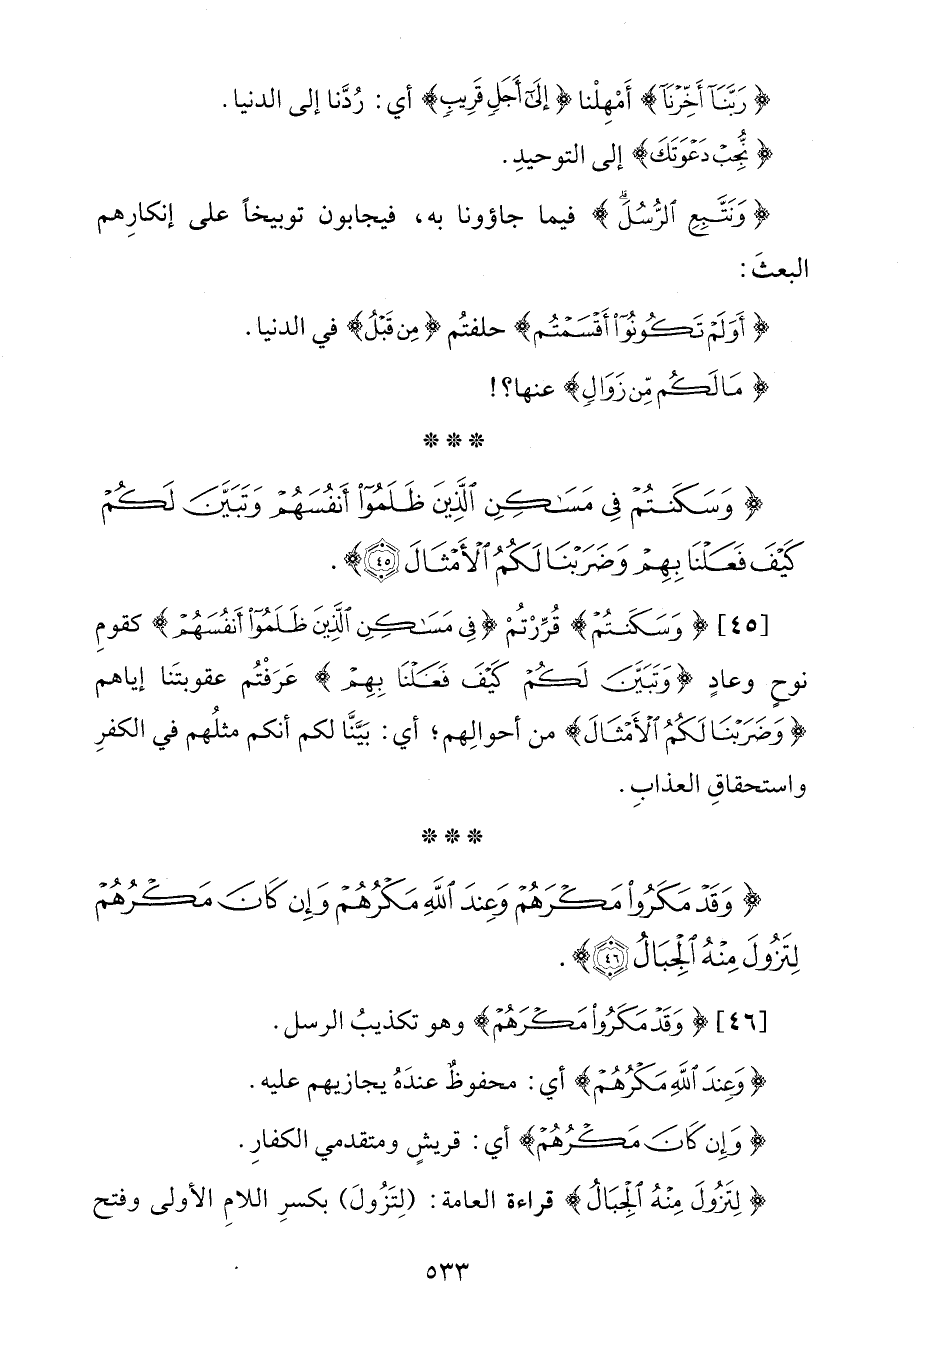 ﴿رَبَّنَآ أَخِّرْنَآ﴾ أَمْهِلْنا ﴿إِلَىٰٓ أَجَلٖ قَرِيبٖ﴾ أي: رُدَّنا إلى الدنيا.
﴿نُّجِبۡ دَعۡوَتَكَ﴾ إلى التوحيدِ.
﴿وَنَتَّبِعِ ٱلرُّسُلَۗ﴾ فيما جاؤونا به، فيجابون توبيخاً على إنكارِهم
البعثَ:
﴿أَوَلَمۡ تَكُونُوٓاْ أَقۡسَمۡتُم﴾ حلفتُم ﴿مِن قَبۡلُ﴾ في الدنيا.
﴿مَا لَكُم مِّن زَوَالٖ﴾ عنها؟!
***
﴿وَسَكَنتُمۡ فِي مَسَٰكِنِ ٱلَّذِينَ ظَلَمُوٓاْ أَنفُسَهُمۡ وَتَبَيَّنَ لَكُمۡ
كَيۡفَ فَعَلۡنَا بِهِمۡ وَضَرَبۡنَا لَكُمُ ٱلۡأَمۡثَالَ ٤٥﴾.
[٤٥] ﴿وَسَكَنتُمۡ﴾ قُرِّرْتُمْ ﴿فِي مَسَٰكِنِ ٱلَّذِينَ ظَلَمُوٓاْ أَنفُسَهُمۡ﴾ كقومِ
نوحٍ وعادٍ ﴿وَتَبَيَّنَ لَكُمۡ كَيۡفَ فَعَلۡنَا بِهِمۡ﴾ عَرَفْتُم عقوبتَنا إياهم
﴿وَضَرَبۡنَا لَكُمُ ٱلۡأَمۡثَالَ﴾ من أحوالِهم؛ أي: بَيَّنَّا لكم أنكم مثلُهم في الكفرِ
واستحقاقِ العذابِ.
***
﴿وَقَدۡ مَكَرُواْ مَكۡرَهُمۡ وَعِندَ ٱللَّهِ مَكۡرُهُمۡ وَإِن كَانَ مَكۡرُهُمۡ
لِتَزُولَ مِنۡهُ ٱلۡجِبَالُ ٤٦﴾.
[٤٦] ﴿وَقَدۡ مَكَرُواْ مَكۡرَهُمۡ﴾ وهو تكذيبُ الرسل.
﴿وَعِندَ ٱللَّهِ مَكۡرُهُمۡ﴾ أي: محفوظٌ عندَهُ يجازيهم عليه.
﴿وَإِن كَانَ مَكۡرُهُمۡ﴾ أي: قريشٍ ومتقدمي الكفارِ.
﴿لِتَزُولَ مِنۡهُ ٱلۡجِبَالُ﴾ قراءة العامة: (لِتَزُولَ) بكسرِ اللامِ الأولى وفتح
٥٣٣